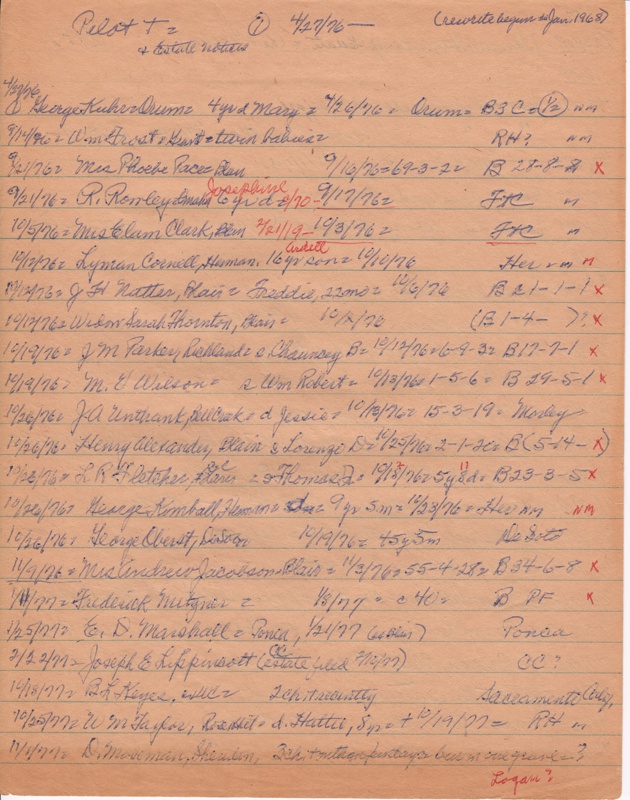 Pilot † = ① 4/27/76 — (rewrite begun in Jan. 1968)
+ Estate notices
4/27/76
George Kuhr = Orum = 4 yr d Mary = 4/26/76 = Orum = B3C = 1/2 nm
9/14/76 = Wm Frost = Grant = twin babies = RH? nm
9/21/76 = Mrs Phoebe Pace = Blair 9/16/76 = 69-3-2 = B 28-8-8 x
Josephine
9/21/76 = R. Rowley 6 yr d = 9/17/76 = FtC n
10/5/76 = Mrs Elam Clark, Blair 2/21/19 - 10/3/76 = FtC
Ardell
10/12/76 = Lyman Cornell, Herman. 16 yr son = 10/10/76 Her = n n
10/12/76 = J H Natter, Blair = Freddie, 22 mo = 10/6/76 B 21-1-1 x
10/12/76 = Widow Sarah Thornton, Blair = 10/2/76 (B 1-4- )? x
10/19/76 = J M Parker, Richland = s. Chauncey B = 10/12/76 = 6-9-3 = B17-7-1 x
10/19/76 = M. V Wilson = s Wm Robert = 10/13/76 = 1-5-6 = B 29-5-1 x
10/26/76 = J. A Unthank, Bell Creek = d Jessie = 10/13/76 = 15-3-19 = Morley
10/26/76 = Henry Alexander, Blair s Lorenzo D = 10/25/76 = 2-1-20 = B (5-14- x)
10/26/76 = L R Fletcher, Blair = s Thomas J = 10/18/76 = 5y 8d = B23-3-5 x
10/26/76 = George Kimball, Herman = 9 yr 5m = 10/23/76 = Her nm nm
10/26/76 = George Oberst, DeSoto 10/19/76 = 45y 5m DeSoto
11/9/76 = Mrs Andrew Jacobson = Blair = 11/3/76 = 55-4-28 = B 34-6-8 x
1/11/77 = Frederick Metzner = 1/8/77 = c 40 = B PF x
1/25/77 = E. D. Marshall = Ponca, 1/21/77 Ponca
2/22/77 = Joseph E Lippincott (CC estate filed 2/10/77) CC?
B L Keyes, Sacramento Calif,
10/25/77 = W M Taylor, d. Hattie, 8 yr = † 10/19/77 = RH n
D. Moseman, Sheridan, graves?
Logan?